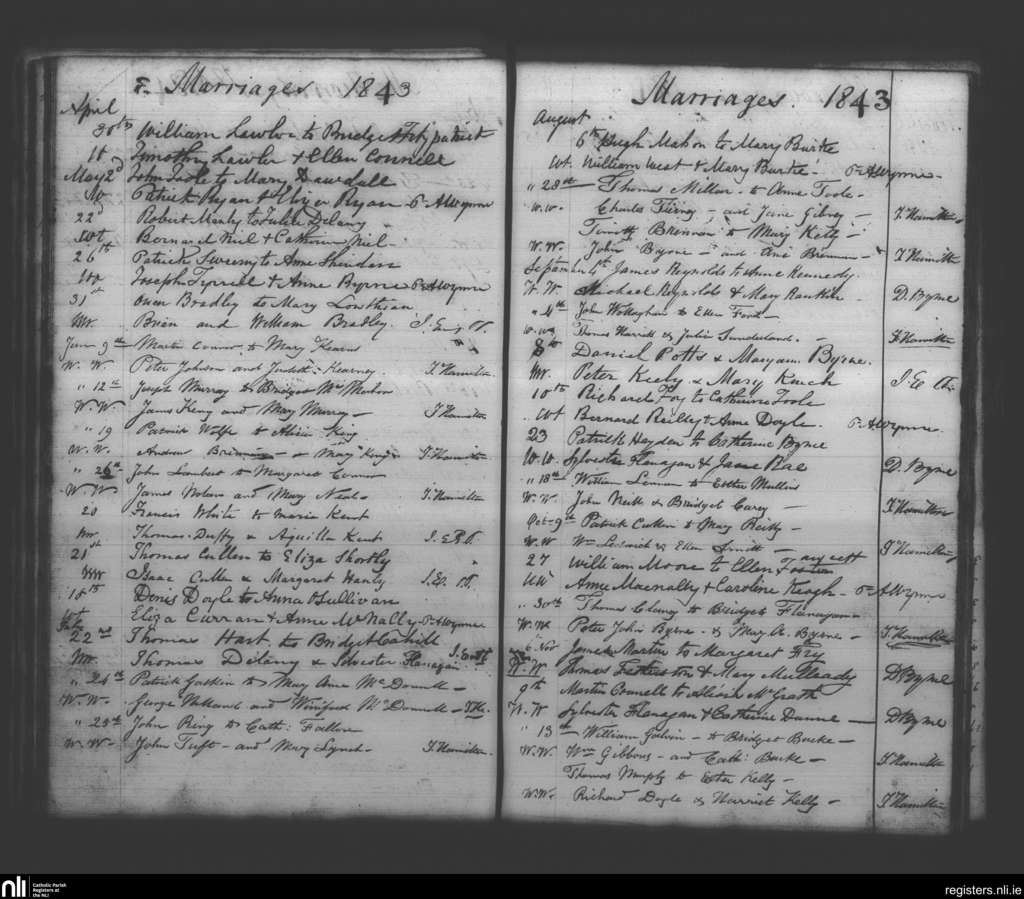 Marriages 1843
April
30th William Lawlor to Bridget Fitzpatrick
Timothy Lawler & Ellen Connell
May 2d John Toole to Mary Dowdall
Patrick Ryan & Eliza Ryan P. A Wynne
22d Robert Manly to Julia Delany
Wt Bernard Niel & Catherine Niel
26th Patrick Sweeny to Anne Sheridan
Joseph Tyrrell & Anne Byrne P. A Wynne
31st Owen Bradly to Mary
Brien and William Bradley.
June 9th Martin Connor to Mary Kearns
W. W. Peter Johnson and Judith Kearney. J Hamilton
" 12th Joseph Murray to Bridget
W. W. James Keny and Mary Murray - J Hamilton
" 19 Patrick Wolfe to Alicia King
W. W. Andrew Brennan & Mary King J. Hamilton
" 26th John Lambert to Margaret Connor
W. W. James Nolan and Mary J. Hamilton
20 Francis White to Maria Kent
Thomas Duffy & Aquilla Kent
21st Thomas Cullen to Eliza Shortly
Isaac Cullen & Margaret Hanly
18th Denis Doyle to Anna O'Sullivan
Wt Eliza Curran & Anne McNally P. A Wynne
July
22nd Thomas Hart to Bridget Cahill
Thomas Delany & Silvester Flanagan
" 24th Patrick Gaskin to Mary Anne McDonnell -
W. W. George Holland and Winifred McDonnell -
" 25th John Ring to Cath: Fallon
W. W. John Tuft - and Mary Lynch - J Hamilton.
Marriages. 1843
August
6th Hugh Mahon to Mary Burke
Wt. William West & Mary Burke - P. A Wynne -
" 28th Thomas Millar - to Anne Toole -
W. W. Charles Tierney - and Jane Gilroy - J. Hamilton
Timothy Brennan to Mary Kelly -
W. W. John Byrne - and Ane Brennan - J Hamilton
September 4th James Reynolds to Anne Kennedy.
W. W. Michael Reynolds & Mary Rankin D. Byrne
" 4th John to Ellen Ford -
W. W. Thomas Harrick & Julia Sunderland. - J Hamilton
8th Daniel Potts & Maryann Byrne.
Peter Keely & Mary
10th Richard Foy to Catherine Toole
Wt Bernard Reilly & Anne Doyle. P. A Wynne.
23 Patrick Hayden to Catherine Byrne
W. W. Sylvester Flanagan & Jane Rae D. Byrne
" 18th William Lennon to Esther Mullins
W. W. John Neill & Bridget Carey - J Hamilton
Oct. 9th Patrick Cullen to Mary Reilly -
W W Wm & Ellen Smith - J Hamilton
27 William Moore to Ellen
WW Anne Macnally & Caroline Keogh - P A Wynne
" 30th Thomas Clancy to Bridget Flanagan
W. W. Peter John Byrne - & Mary A. Byrne - J. Hamilton
6 Nov James Martin to Margaret
W. W Thomas Fetherston & Mary Mulready D Byrne
9th Martin Connell to Alicia McGrath
W. W Sylvester Flanagan & Catherine Dunne - D Byrne
" 13th - William Galvin - to Bridget Burke -
W. W. Wm Gibbons - and Cath: Burke - J Hamilton
Thomas Murphy to Ester Kelly -
W. W. Richard Doyle & Harriet Kelly - J Hamilton
nli Catholic Parish
Registers at
the NLI
registers.nli.ie